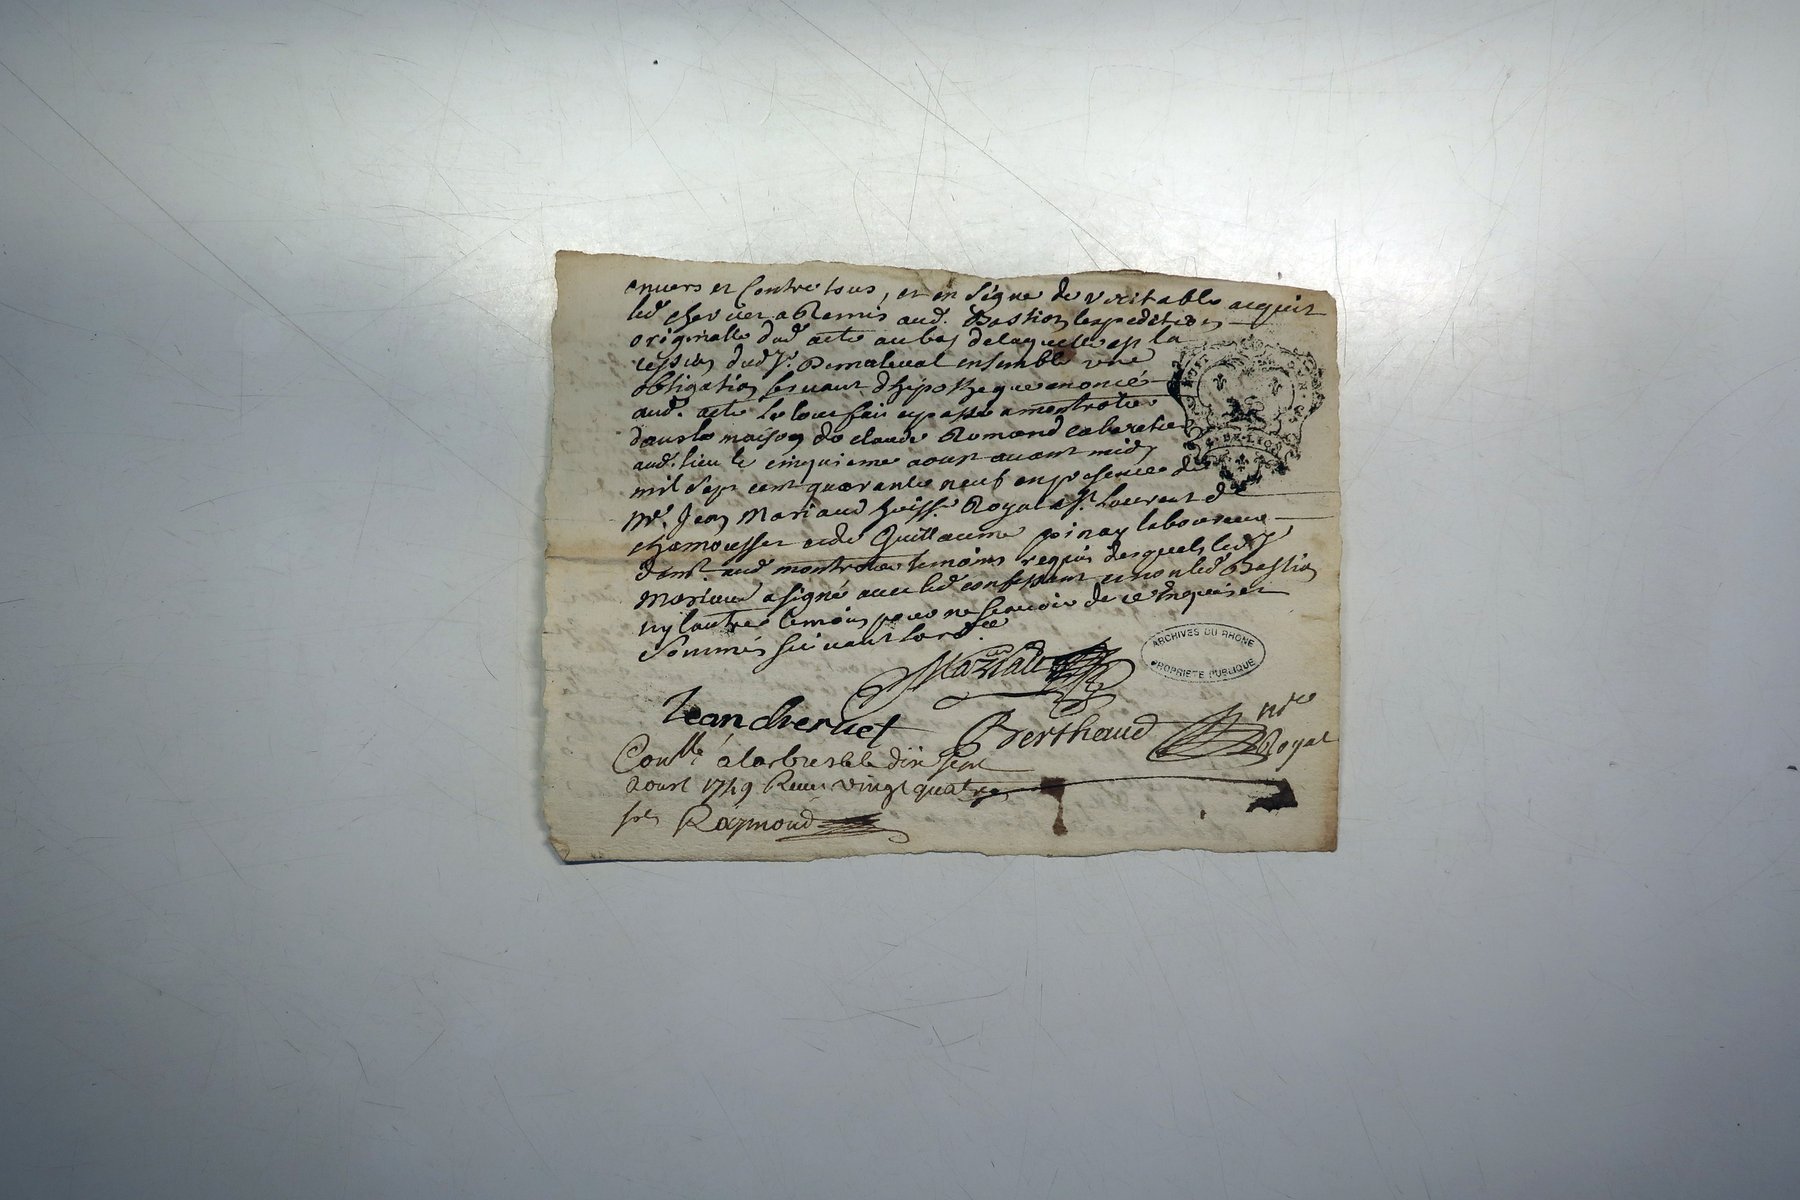 envers et Contre tous, et en signe de veritable acquit
led. chervier a Remis aud. Bastion lexpedition
originalle dud acte au bas delaquelle est la
cession dud Sr. Demaleval ensemble une
obligation servant dhypotheque enoncés
aud. acte le tout fait et passé a montrotier
dans la maison de claude Romand cabaretier
aud. lieu le cinquieme aoust avant midy
mil sept cent quarante neuf en presence de
Mr. Jean Mariaud huiss. Royal a St. Laurent de
chamousset et de Guillaume poinay laboureur
demt. aud montrotier temoins requis desquels led Sr
Mariaud a signé avec led confessant et non led Bastion
ny lautre temoin pour ne scavoir de ce Enquis et
Sommés suivant lord.ce
Mariaud
Jean cheruet
Berthaud nre Royal
Conllé a larbresle le dix sept
aoust 1749 Receu vingt quatre
sols Raymond
DE LYON
ARCHIVES DU RHONE
PROPRIETE PUBLIQUE